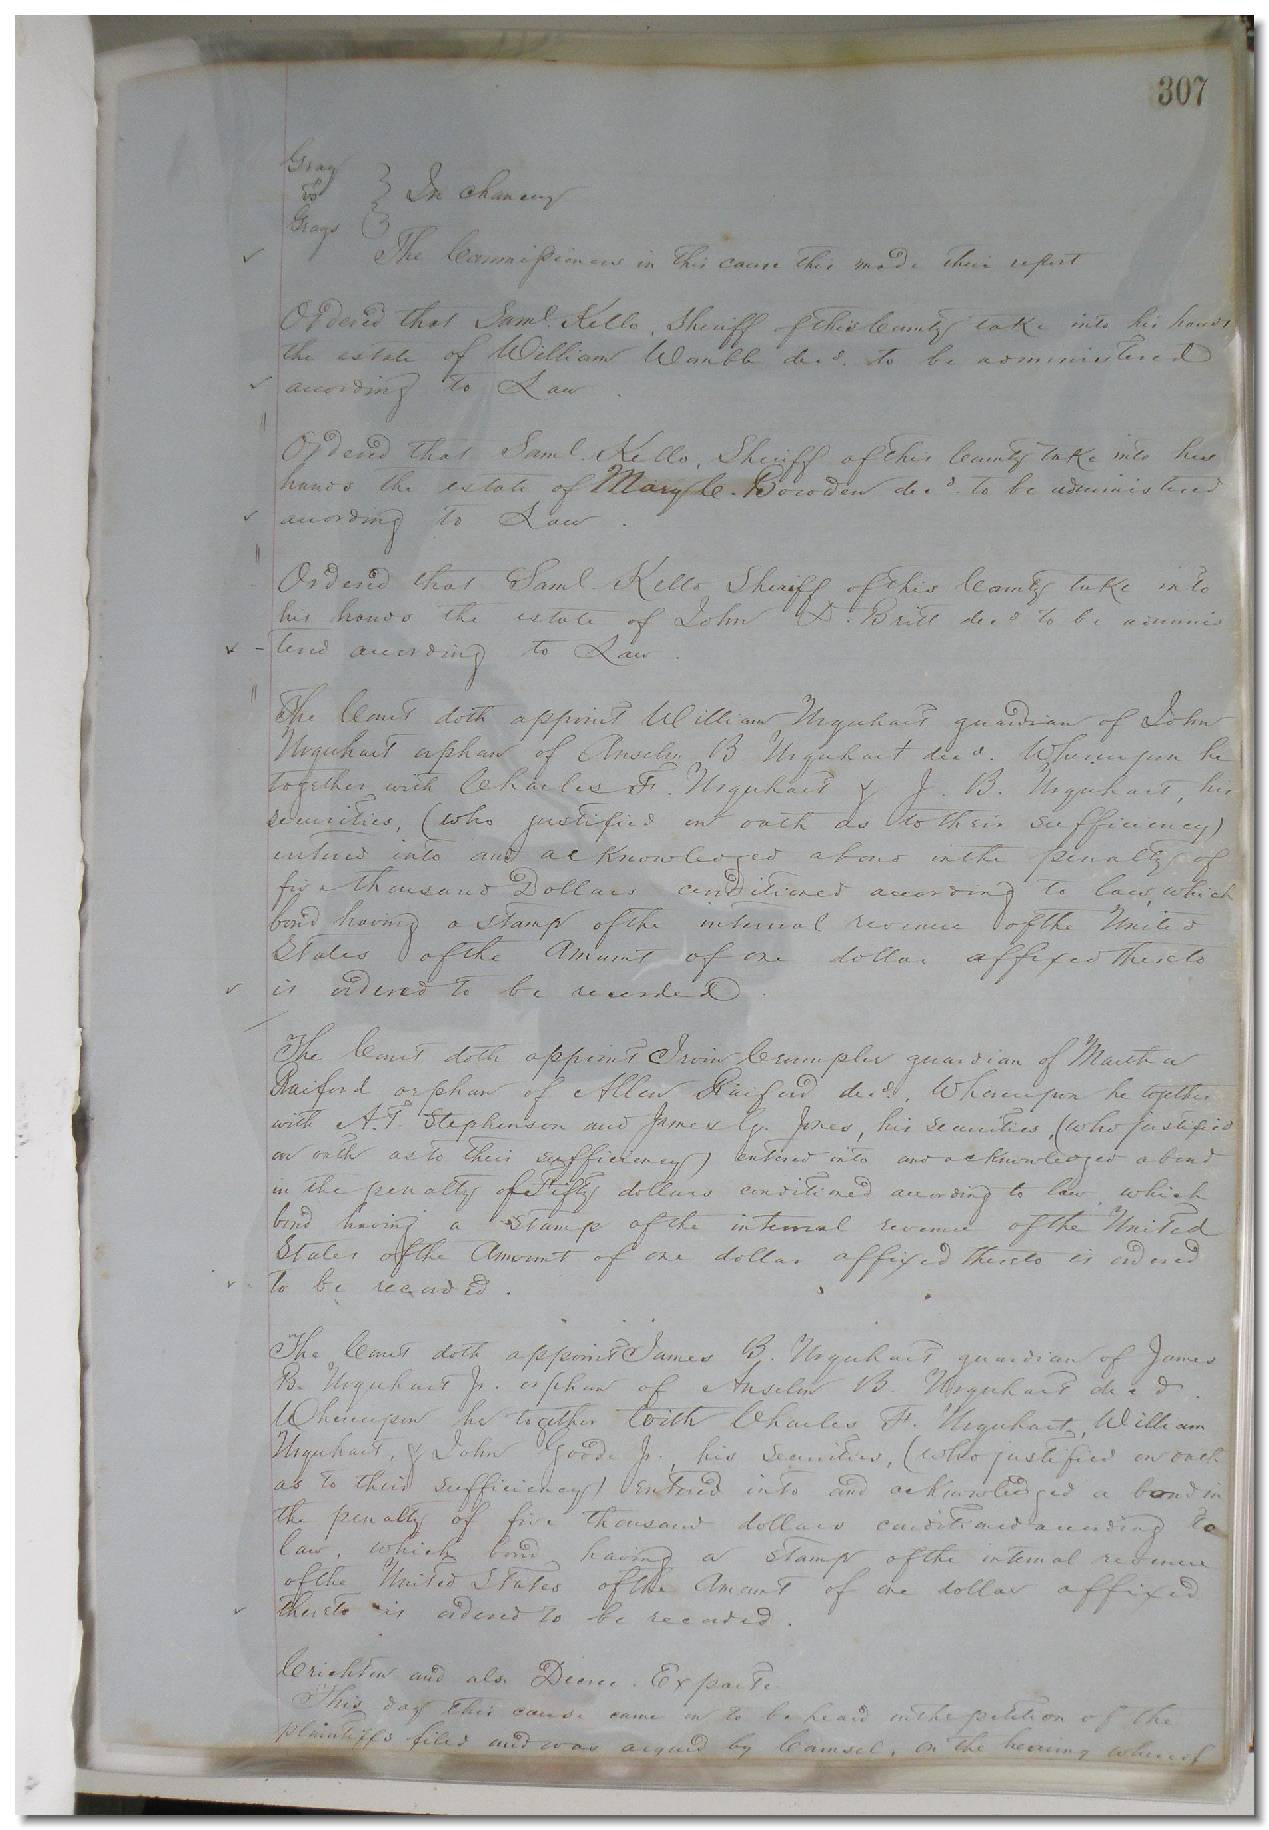 307
Gray
vs } In chancery
Grays
The Commissioners in this cause this made their report
Ordered that Saml. Kello, Sheriff of this County take into his hands
the estate of William Womble decd. to be administered
according to Law.
Ordered that Saml. Kello, Sheriff of this County take into his
hands the estate of Mary C. Bowden decd. to be administered
according to Law.
Ordered that Saml. Kello Sheriff of this County take into
his hands the estate of John D. Britt decd to be adminis
tered according to Law.
The Court doth appoint William Urquhart guardian of John
Urquhart orphan of Anselm B Urquhart decd. Whereupon he
together with Charles F. Urquhart & J. B. Urquhart, his
securities, (who justified on oath as to their sufficiency)
entered into and acknowledged a bond in the penalty of
five thousand Dollars conditioned according to law, which
bond having a stamp of the internal revenue of the United
States of the Amount of one dollar affixed thereto
is ordered to be recorded.
The Court doth appoint Irvin Crumpler guardian of Martha
Raiford orphan of Allen Raiford decd. Whereupon he together
with A. T. Stephenson and James G. Jones, his securities, (who justified
on oath as to their sufficiency) entered into and acknowledged a bond
in the penalty of Fifty dollars conditioned according to law which
bond having a stamp of the internal revenue of the United
States of the Amount of one dollar affixed thereto is ordered
to be recorded.
The Court doth appoint James B. Urquhart guardian of James
B. Urquhart Jr. orphan of Anselm B. Urquhart decd.
Whereupon he together with Charles F. Urquhart, William
Urquhart, & John Goode Jr., his securities, (who justified on oath
as to their sufficiency) entered into and acknowledged a bond in
the penalty of five thousand dollars conditioned according to
law, which bond having a stamp of the internal revenue
of the United States of the Amount of one dollar affixed
thereto is ordered to be recorded.
Crichton and als. Decree. Exparte
This day this cause came on to be heard on the petition of the
plaintiffs filed and was argued by Counsel, on the hearing whereof